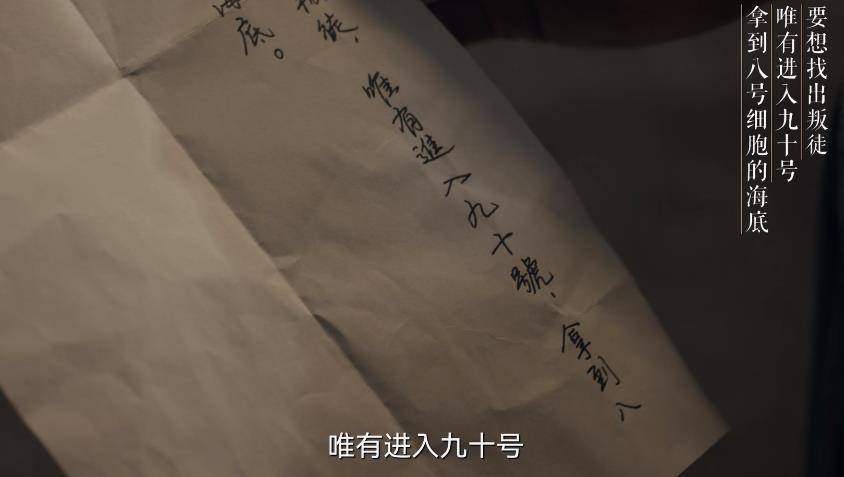 要想找出叛徒
唯有进入九十号
拿到八号细胞的海底
徒，
唯有進入九十號，拿到八
底。
唯有进入九十号